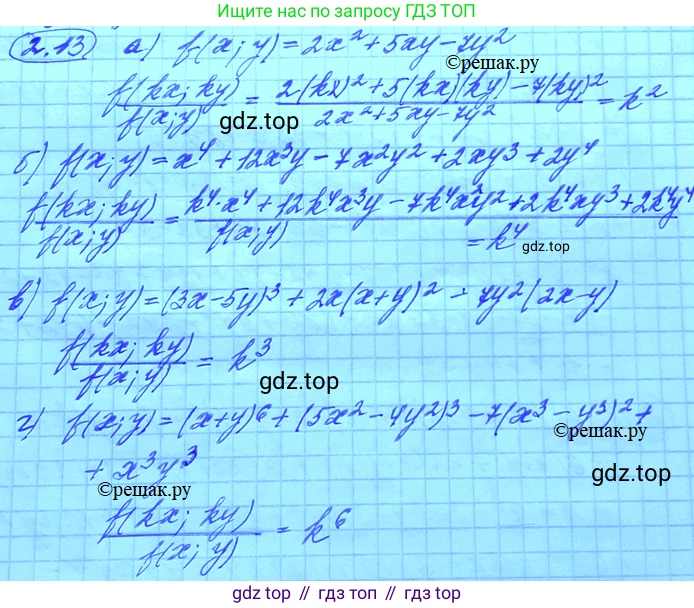 Ищите нас по запросу ГДЗ ТОП
2.13 а) f(x; y) = 2x² + 5xy - 7y²
©решак.ру
f(kx; ky)/f(x; y) = (2(kx)² + 5(kx)(ky) - 7(ky)²)/(2x² + 5xy - 7y²) = k²
gdz.top
б) f(x; y) = x⁴ + 12x³y - 7x²y² + 2xy³ + 2y⁴
f(kx; ky)/f(x; y) = (k⁴·x⁴ + 12k⁴x³y - 7k⁴x²y² + 2k⁴xy³ + 2k⁴y⁴)/f(x; y)
= k⁴ gdz.top
в) f(x; y) = (3x - 5y)³ + 2x(x + y)² - 7y²(2x - y)
f(kx; ky)/f(x; y) = k³
gdz.top
г) f(x; y) = (x + y)⁶ + (5x² - 4y²)³ - 7(x³ - y³)² +
©решак.ру
+ x³y³
©решак.ру
gdz.top
f(kx; ky)/f(x; y) = k⁶
gdz top // гдз топ // gdz.top